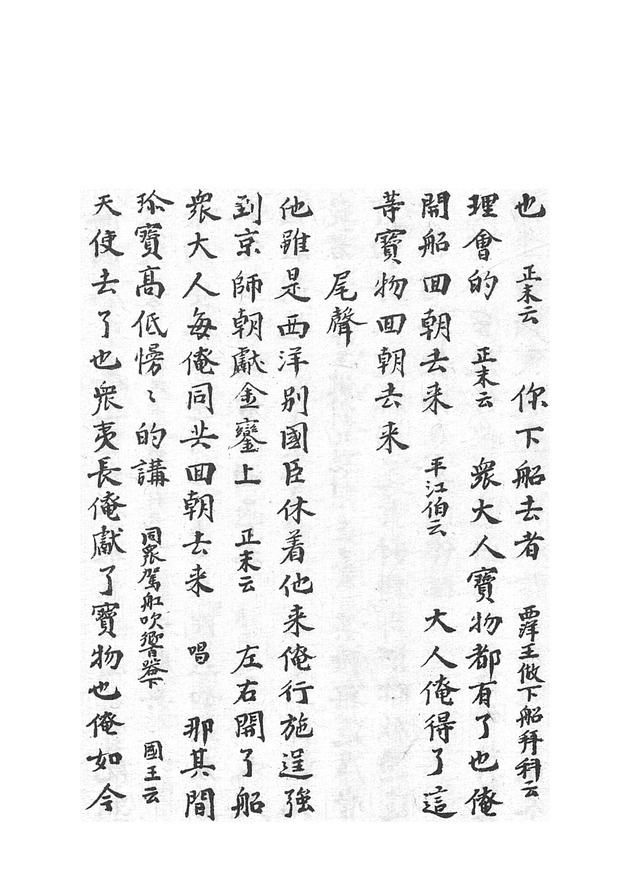 也 正末云 你下船去者 西洋王做下船拜科云
理會的 正末云 衆大人寶物都有了也俺
開船回朝去来 平江伯云 大人俺得了這
等寶物回朝去来
尾聲
他雖是西洋别國臣休着他来俺行施逞強
到京師朝獻金鑾上 正末云 左右開了船
衆大人每俺同共回朝去来 唱 那其間
珎寶高低慢〻的講 同衆駕舡吹響器下 國王云
天使去了也衆夷長俺獻了寶物也俺如今